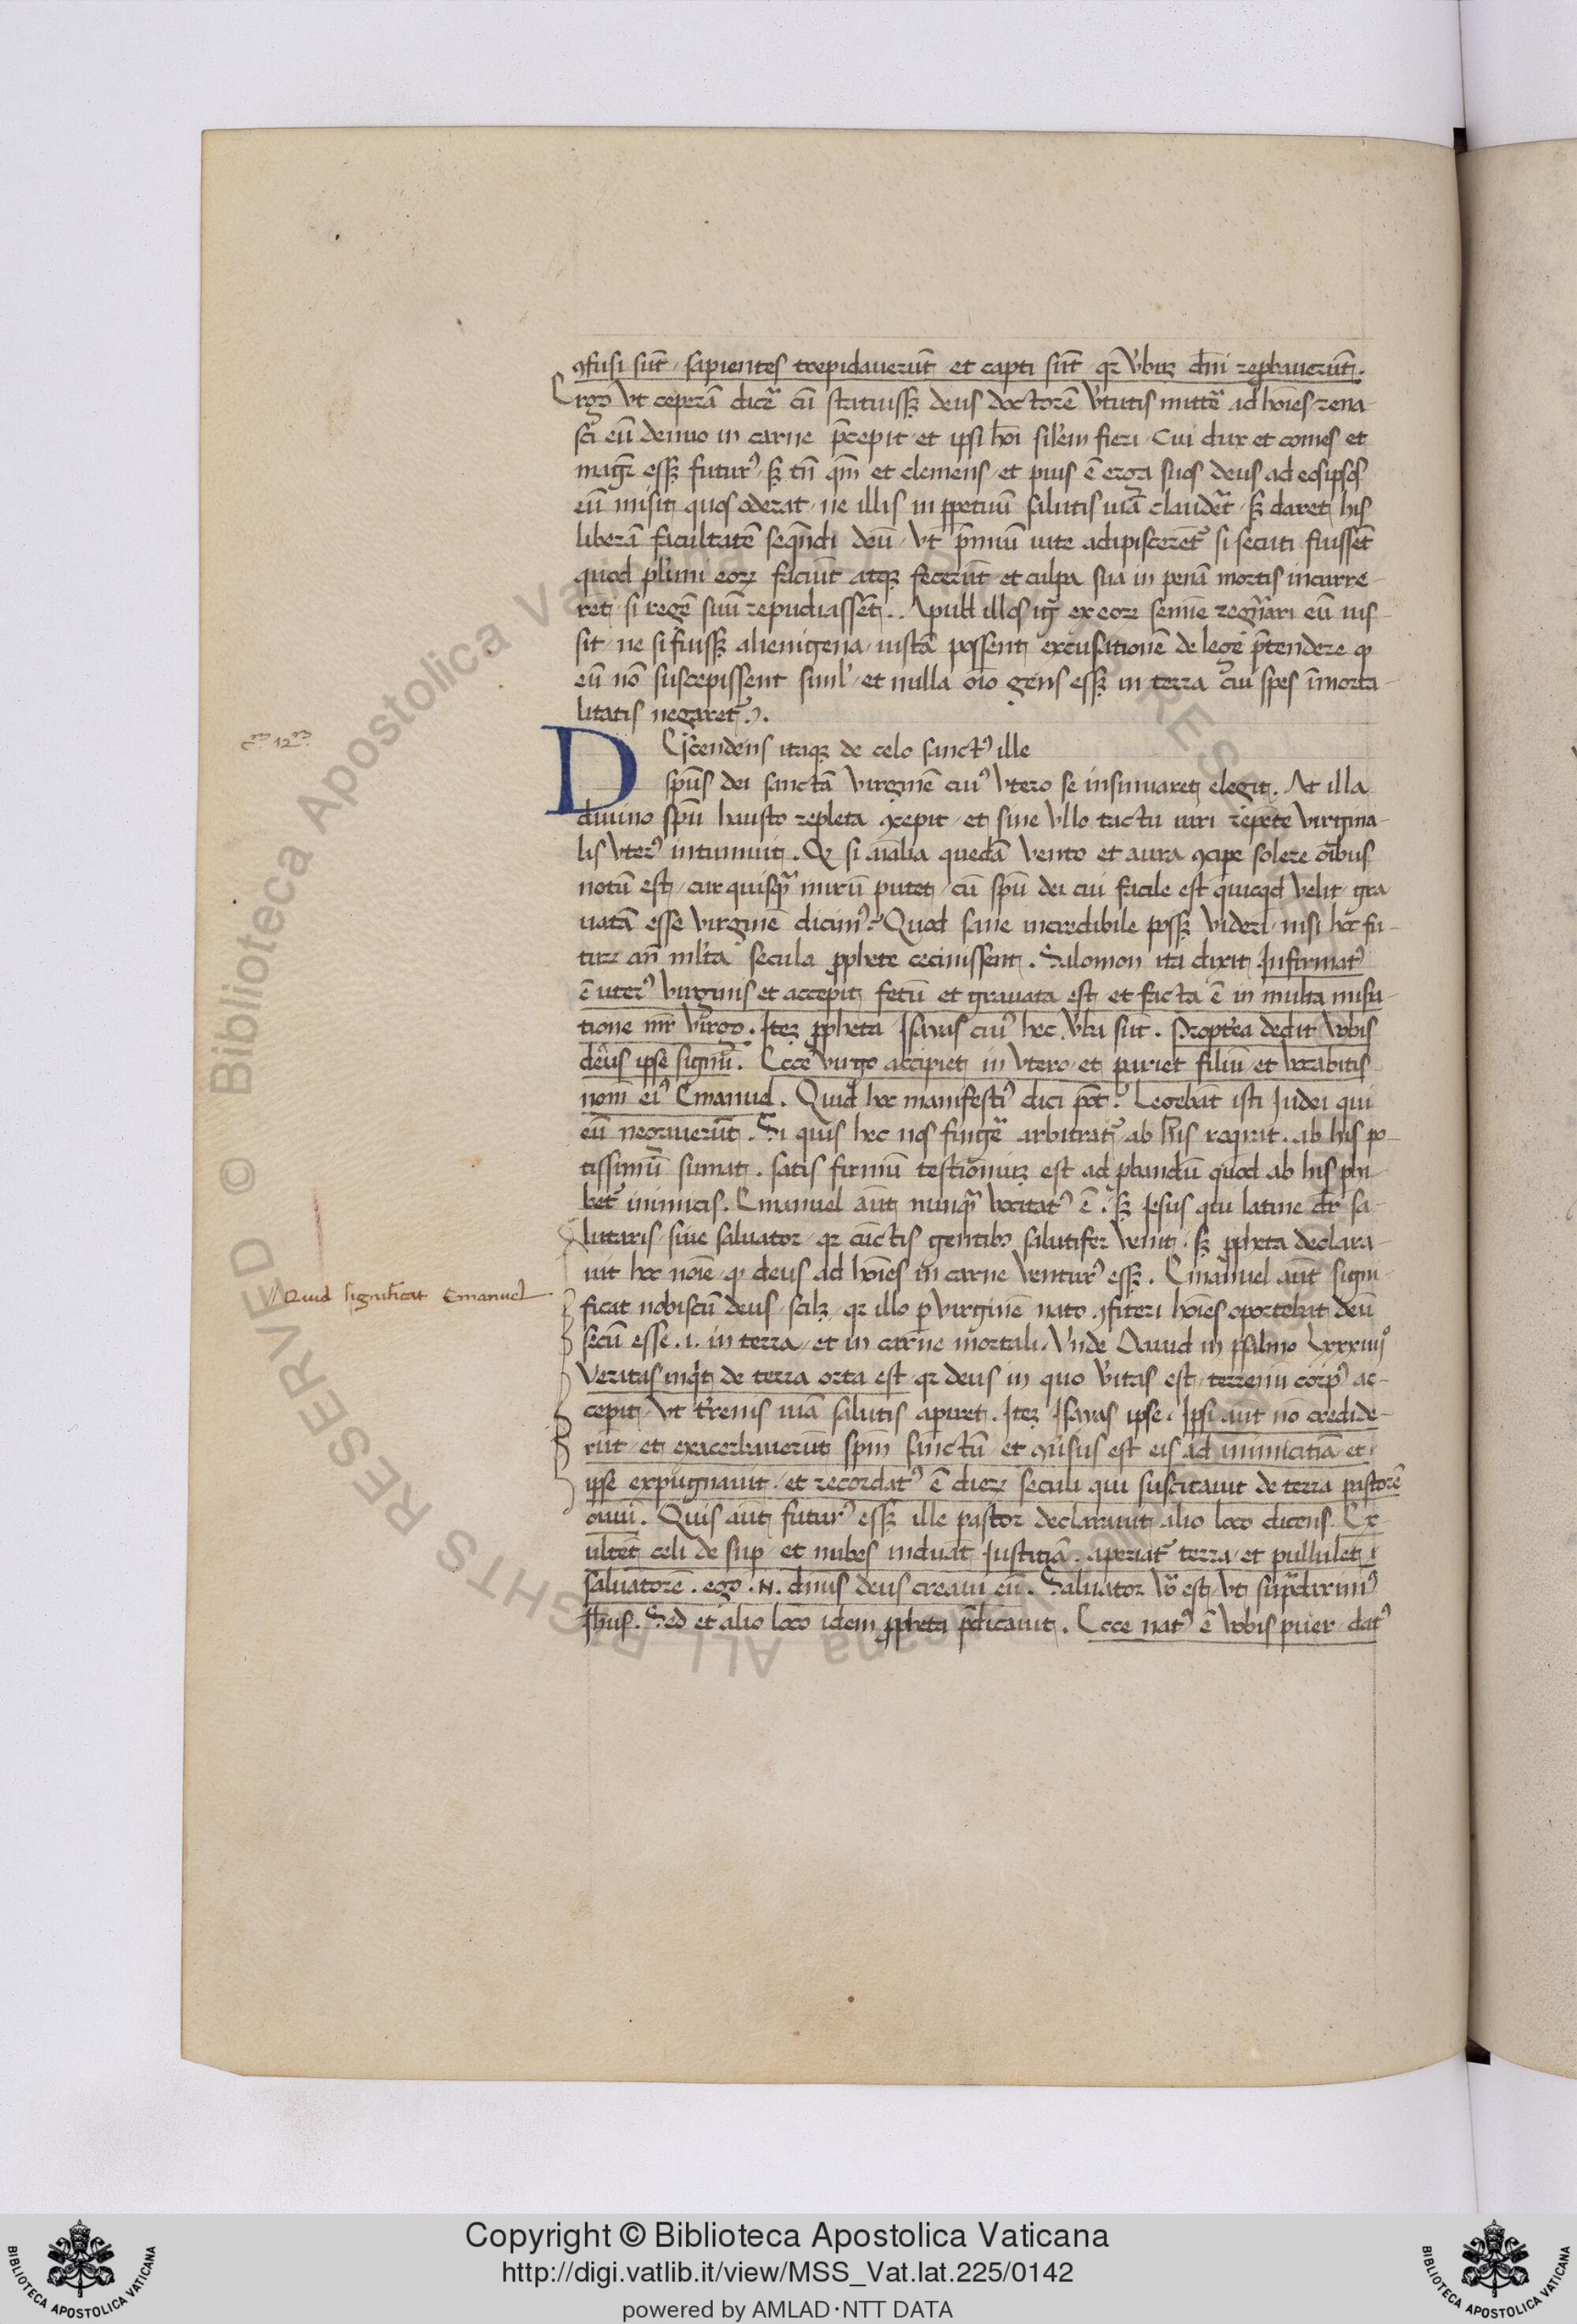 ꝯfusi sūt / sapientes trepidauerūt et capti sūt qꝛ v̓buꝫ dn̄i ꝓbauerūt.
Ergo vt ceperā dicẽ cū statuissꝫ deus doctorē v̓tutis mittẽ ad hoīes / rena-
sci eū denuo in carne p̄cepit / et ipsi hoī sil̓em fieri / Cui dux et comes et
magr̄ essꝫ futurꝰ / sꝫ tn̄ qm̄ et clemens / et pius ē erga suos deus ad eos ipsos
eū misit quos oderat / ne illis in ꝑpetuū salutis uiā claudẽt / sꝫ daret his
liberā facultatē seqn̄di deū / vt p̄miū uite adipiscerēt᷒ si secuti fuissēt
quod pl̓imi eoꝝ faciūt atqꝫ fecerūt / et culpa sua in penā mortis incurre-
rēt / si regē suū repudiassēt. Apud illos igr̄ ex eoꝝ semīe regn̄ari eū ius-
sit / ne si fuissꝫ alienigena / iustā possent excusationē de lege p̄tendere ꝙ
eū nō suscepissent siml̓ / et nulla oīo gens essꝫ in terra cui spes īmorta-
litatis negaret᷒.
cᵐ 12ᵐ
DEscendens itaqꝫ de celo sanctꝰ ille
sp̄us dei sanctā virginē cuiꝰ vtero se insinuaret elegit. At illa
diuino sp̄u hausto repleta ꝯcepit / et sine vllo tactu uiri repēte virgina-
lis vterꝰ intumuit. Qꝫ si aīalia quedā vento et aura ꝯcipe solere oībus
notū est / cur quisq̄ mirū putet / cū sp̄u dei cui facile est quicqd velit / gra
uatā esse virginē dicimꝰ? Quod sane incredibile possꝫ videri / nisi hoc fu-
tuꝝ an̄ ml̓ta secula ꝓphete cecinissent. Salomon ita dixit Infirmatꝰ
ē uterꝰ virginis et accepit fetū et grauata est et facta ē in multa misa-
tione mr̄ virgo. Iteꝫ ꝓpheta Isayas cuiꝰ hec v̓ba sūt. Propt̓ea dedit vobis
deus ipse signū. Ecce virgo accipiet in vtero / et pariet filiū / et vocabitis
nom̄ eiꝰ Emanuel. Quid hoc manifestiꝰ dici pōt? Legebāt isti Iudei qui
eū negauerūt. Si quis hec nos fingẽ arbitrat᷒ / ab his reqrat. ab his po-
tissimū sumat. satis firmū testimoniuꝫ est ad ꝓbandū quod ab his ꝑhi-
bet᷒ inimicis. Emanuel aūt nunq̄ vocitatꝰ ē / sꝫ Iesus qui latine dr̄ sa-
lutaris / siue saluator / qꝛ cūctis gentibꝫ salutifer venit / sꝫ ꝓpheta declara-
uit hoc noīe ꝙ deus ad hoīes in carne venturꝰ essꝫ. Emanuel aūt signi-
// Quid significat Emanuel
ficat nobiscū deus / scilꝫ / qꝛ illo ꝑ virginē nato ꝯfiteri hoīes oportebat deū
secū esse .i. in terra / et in carne mortali. Vnde Dauid in psalmo lxxxiiijº
Veritas inq̓t de terra orta est qꝛ deus in quo v̓itas est / terrenū corpꝰ ac-
cepit / vt t̓renis uiā salutis apiret. Iteꝫ Isayas ipse. Ipsi aūt nō credide-
rūt / et exacerbauerūt sp̄m sanctū / et ꝯu̓sus est eis ad inimicitiā et
ipse expugnauit / et recordatꝰ ē dieꝝ seculi qui suscitauit de terra pastorē
ouiū. Quis aūt futurꝰ essꝫ ille pastor declarauit alio loco dicens. Ex-
ultēt celi de suꝑ et nubes induāt iustitiā. aperiat᷒ terra / et pullulet
saluatorē. ego .N. dn̄us deus creaui eū. Saluator v̊ est vt sup̄diximꝰ
Ih̄us. Sed et alio loco idem ꝓpheta p̄dicauit. Ecce natꝰ ē vobis puer / datꝰ
Copyright © Biblioteca Apostolica Vaticana
http://digi.vatlib.it/view/MSS_Vat.lat.225/0142
powered by AMLAD·NTT DATA
BIBLIOTECA APOSTOLICA VATICANA
BIBLIOTECA APOSTOLICA VATICANA
© Biblioteca Apostolica Vaticana ALL RIGHTS RESERVED